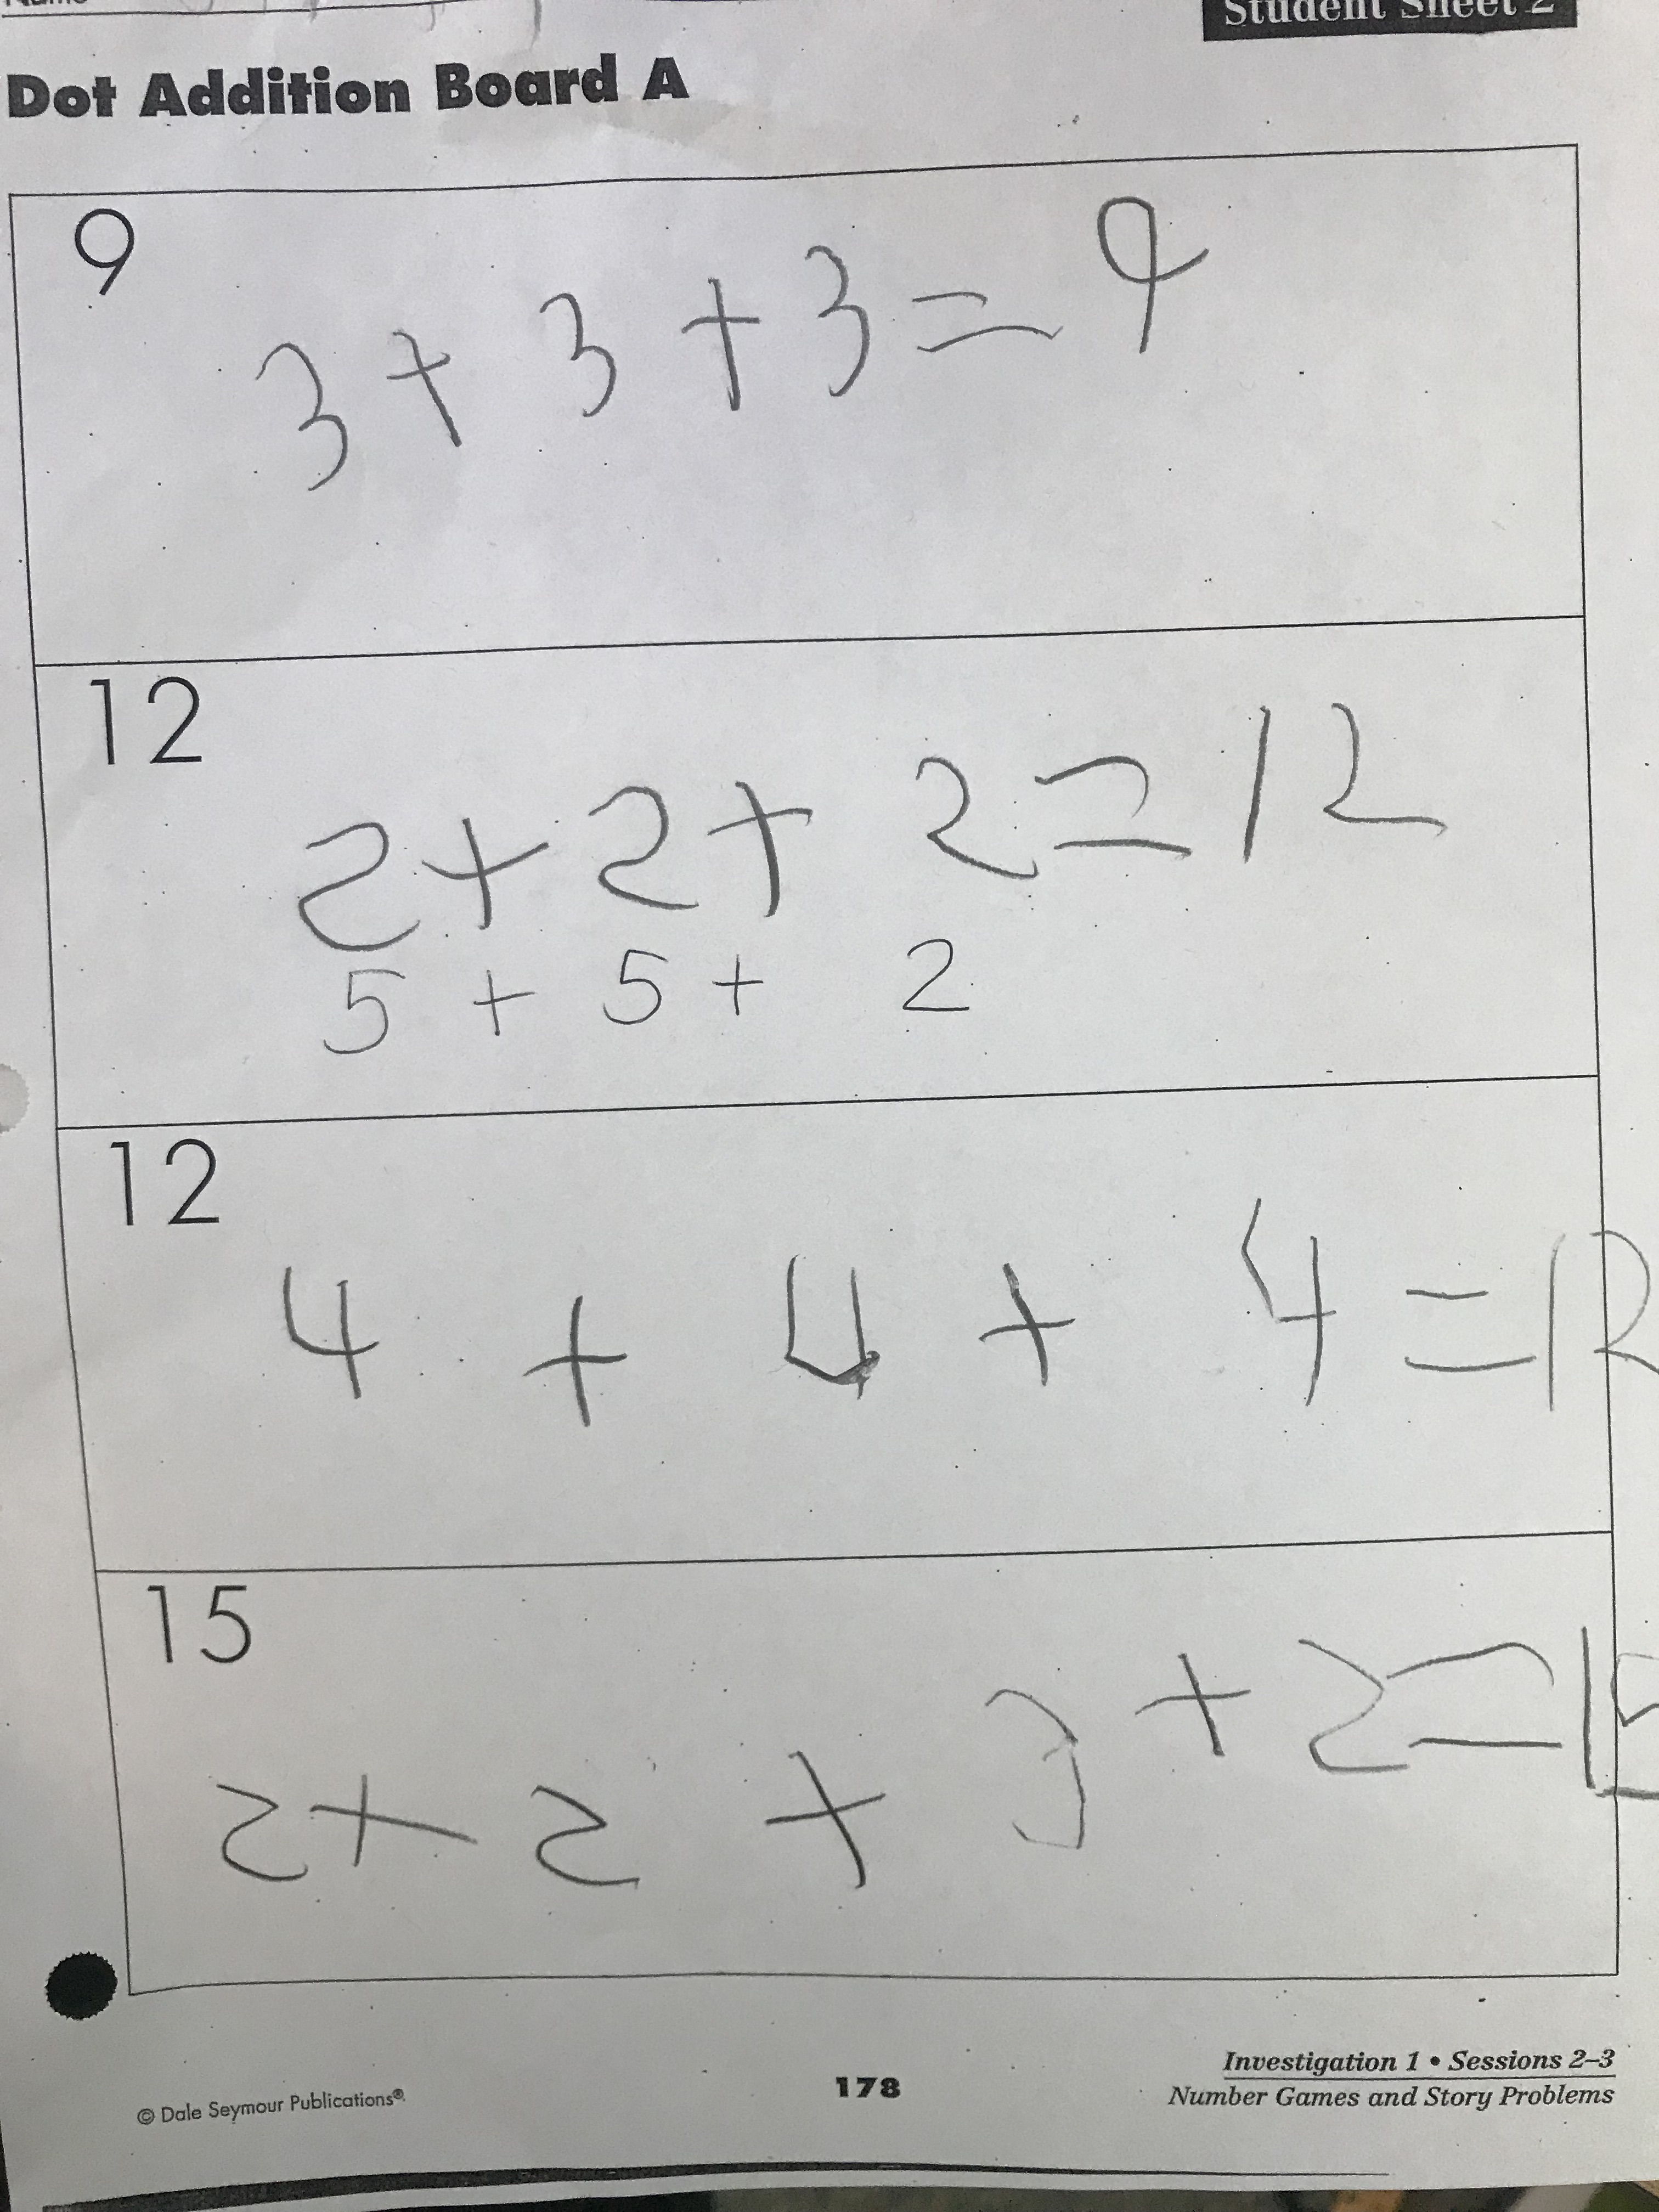 Student Sheet 2
Dot Addition Board A
9
3 + 3 + 3 = 9
12
2 + 2 + 2 = 12
5 + 5 + 2
12
4 + 4 + 4 = 12
15
2 + 2 + 3 + 2 = 15
© Dale Seymour Publications®
178
Investigation 1 • Sessions 2–3
Number Games and Story Problems